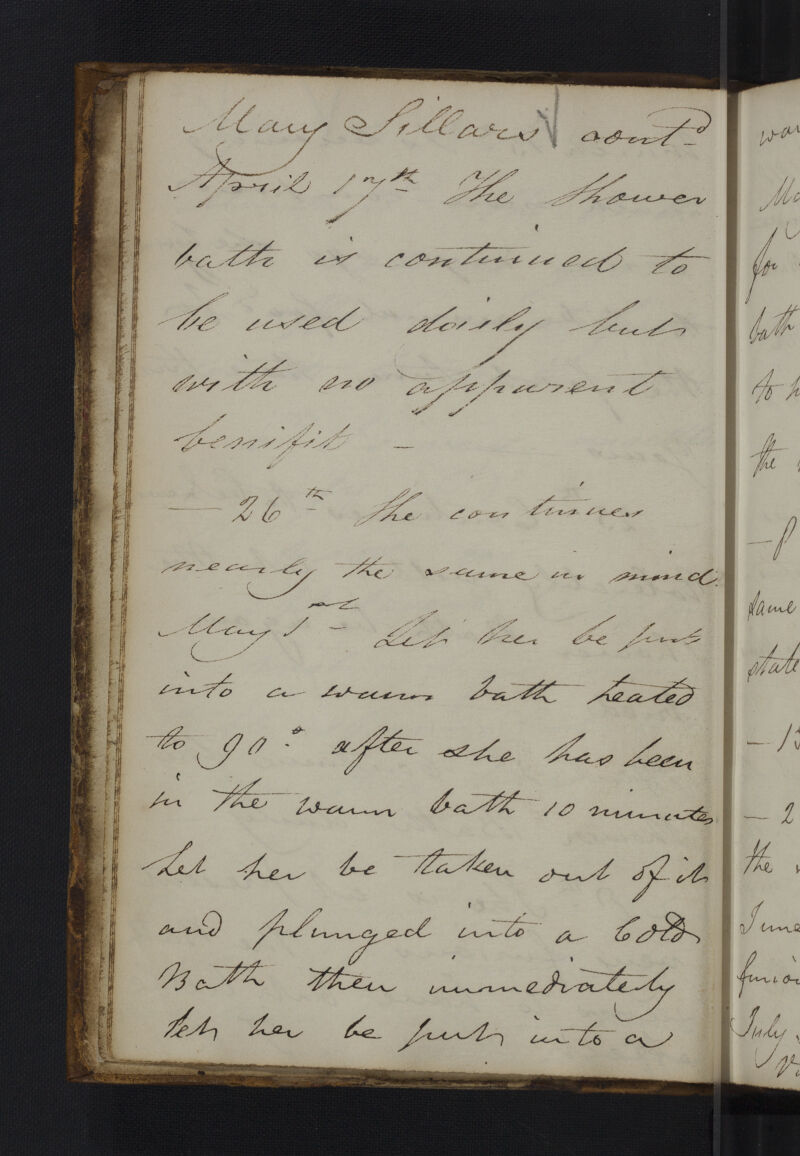 Mary Sillars cont.d
April 17th The Shower
bath is continued to
be used daily but
with no apparent
benifit –
— 26th She continues
nearly the same in mind.
May 1st Let her be put
into a warm bath heated
to 90.° after she has been
in the warm bath 10 minutes
Let her be taken out of it
and plunged into a Cold
Bath then immediately
let her be put into a
Ma
for
bath
to h
the
— 8
same
state
— 13
— 2
the
June
July